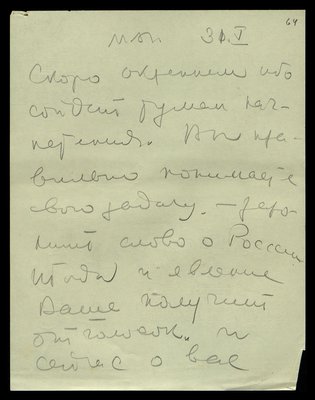 64
31.V
Скоро окрепнем ибо
сойдёт туман нас-
Вы пра-
вильно понимаете
свою задачу. — заро-
нить слово о России
Тогда и явление
Ваше получит
отголосок. и
сейчас о вас